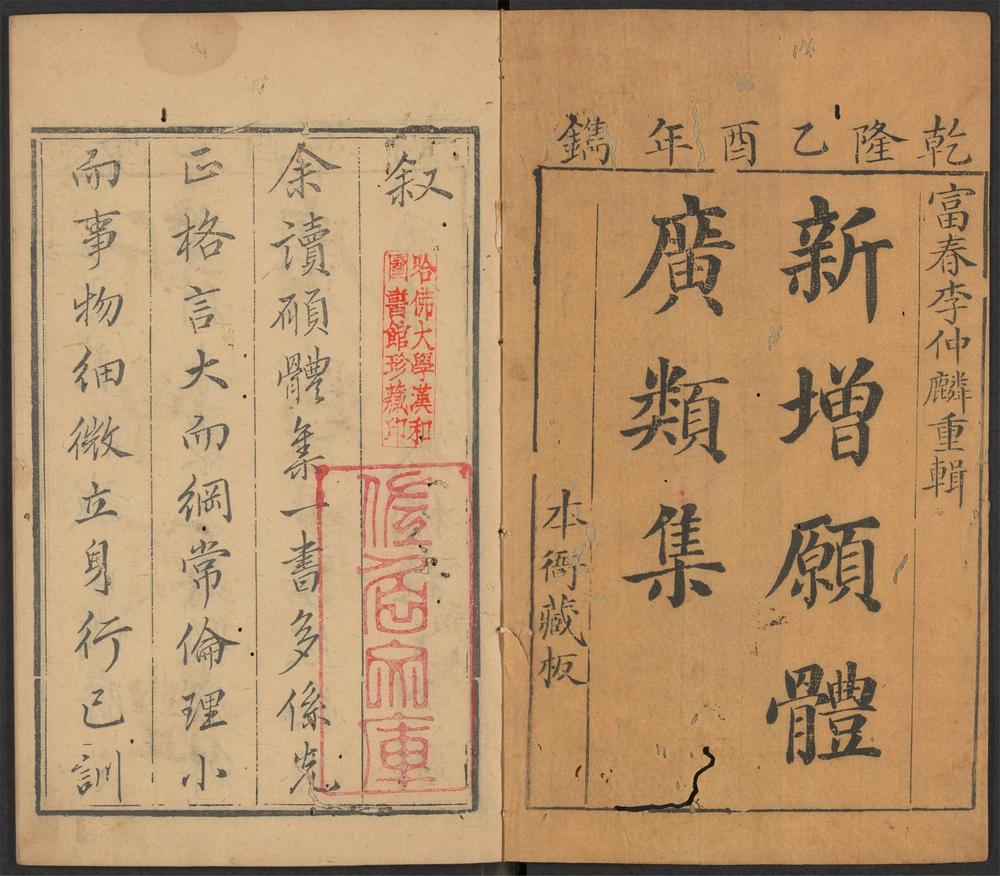 乾隆乙酉年鐫
富春李仲麟重輯
新增願體
廣類集
本衙藏板
叙
哈佛大學漢和
圖書館珍藏印
余讀願體集一書多係先
正格言大而綱常倫理小
而事物細微立身行己訓